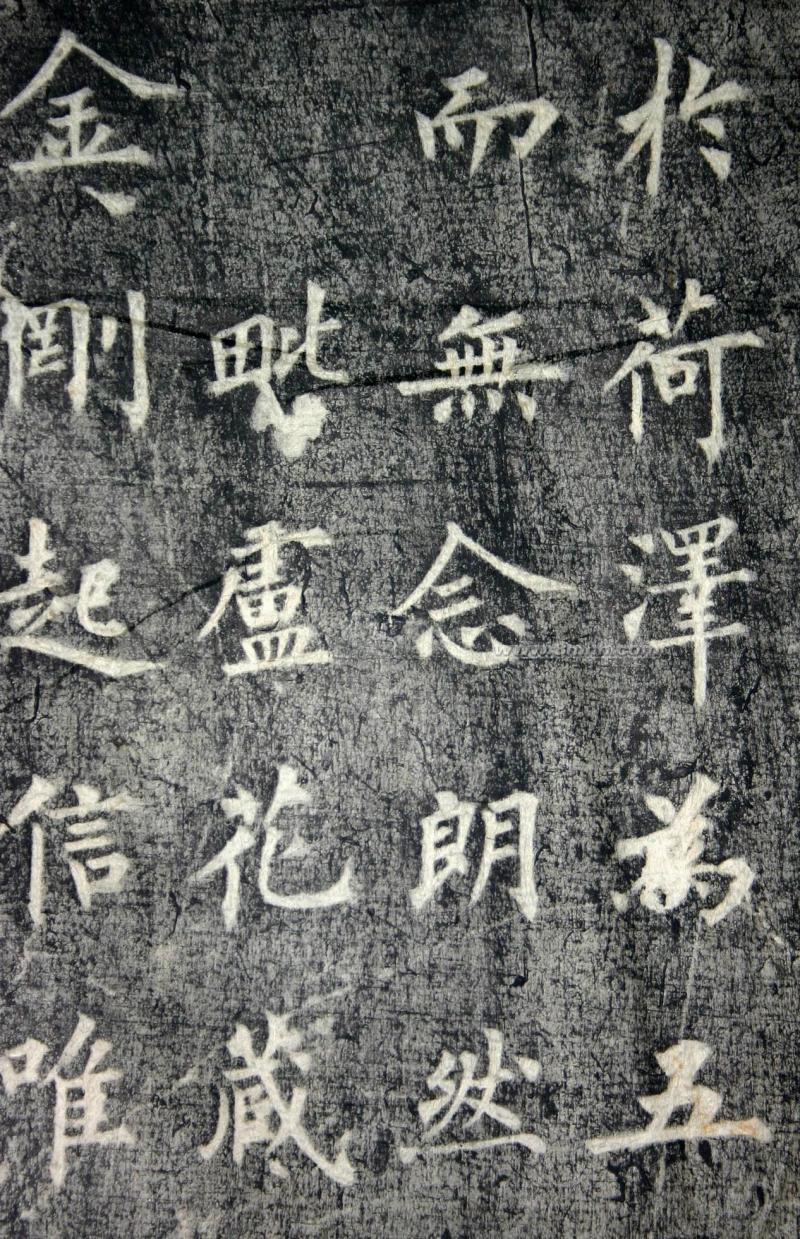 於荷澤為五
而無念朗然
毗盧花藏
金剛起信唯